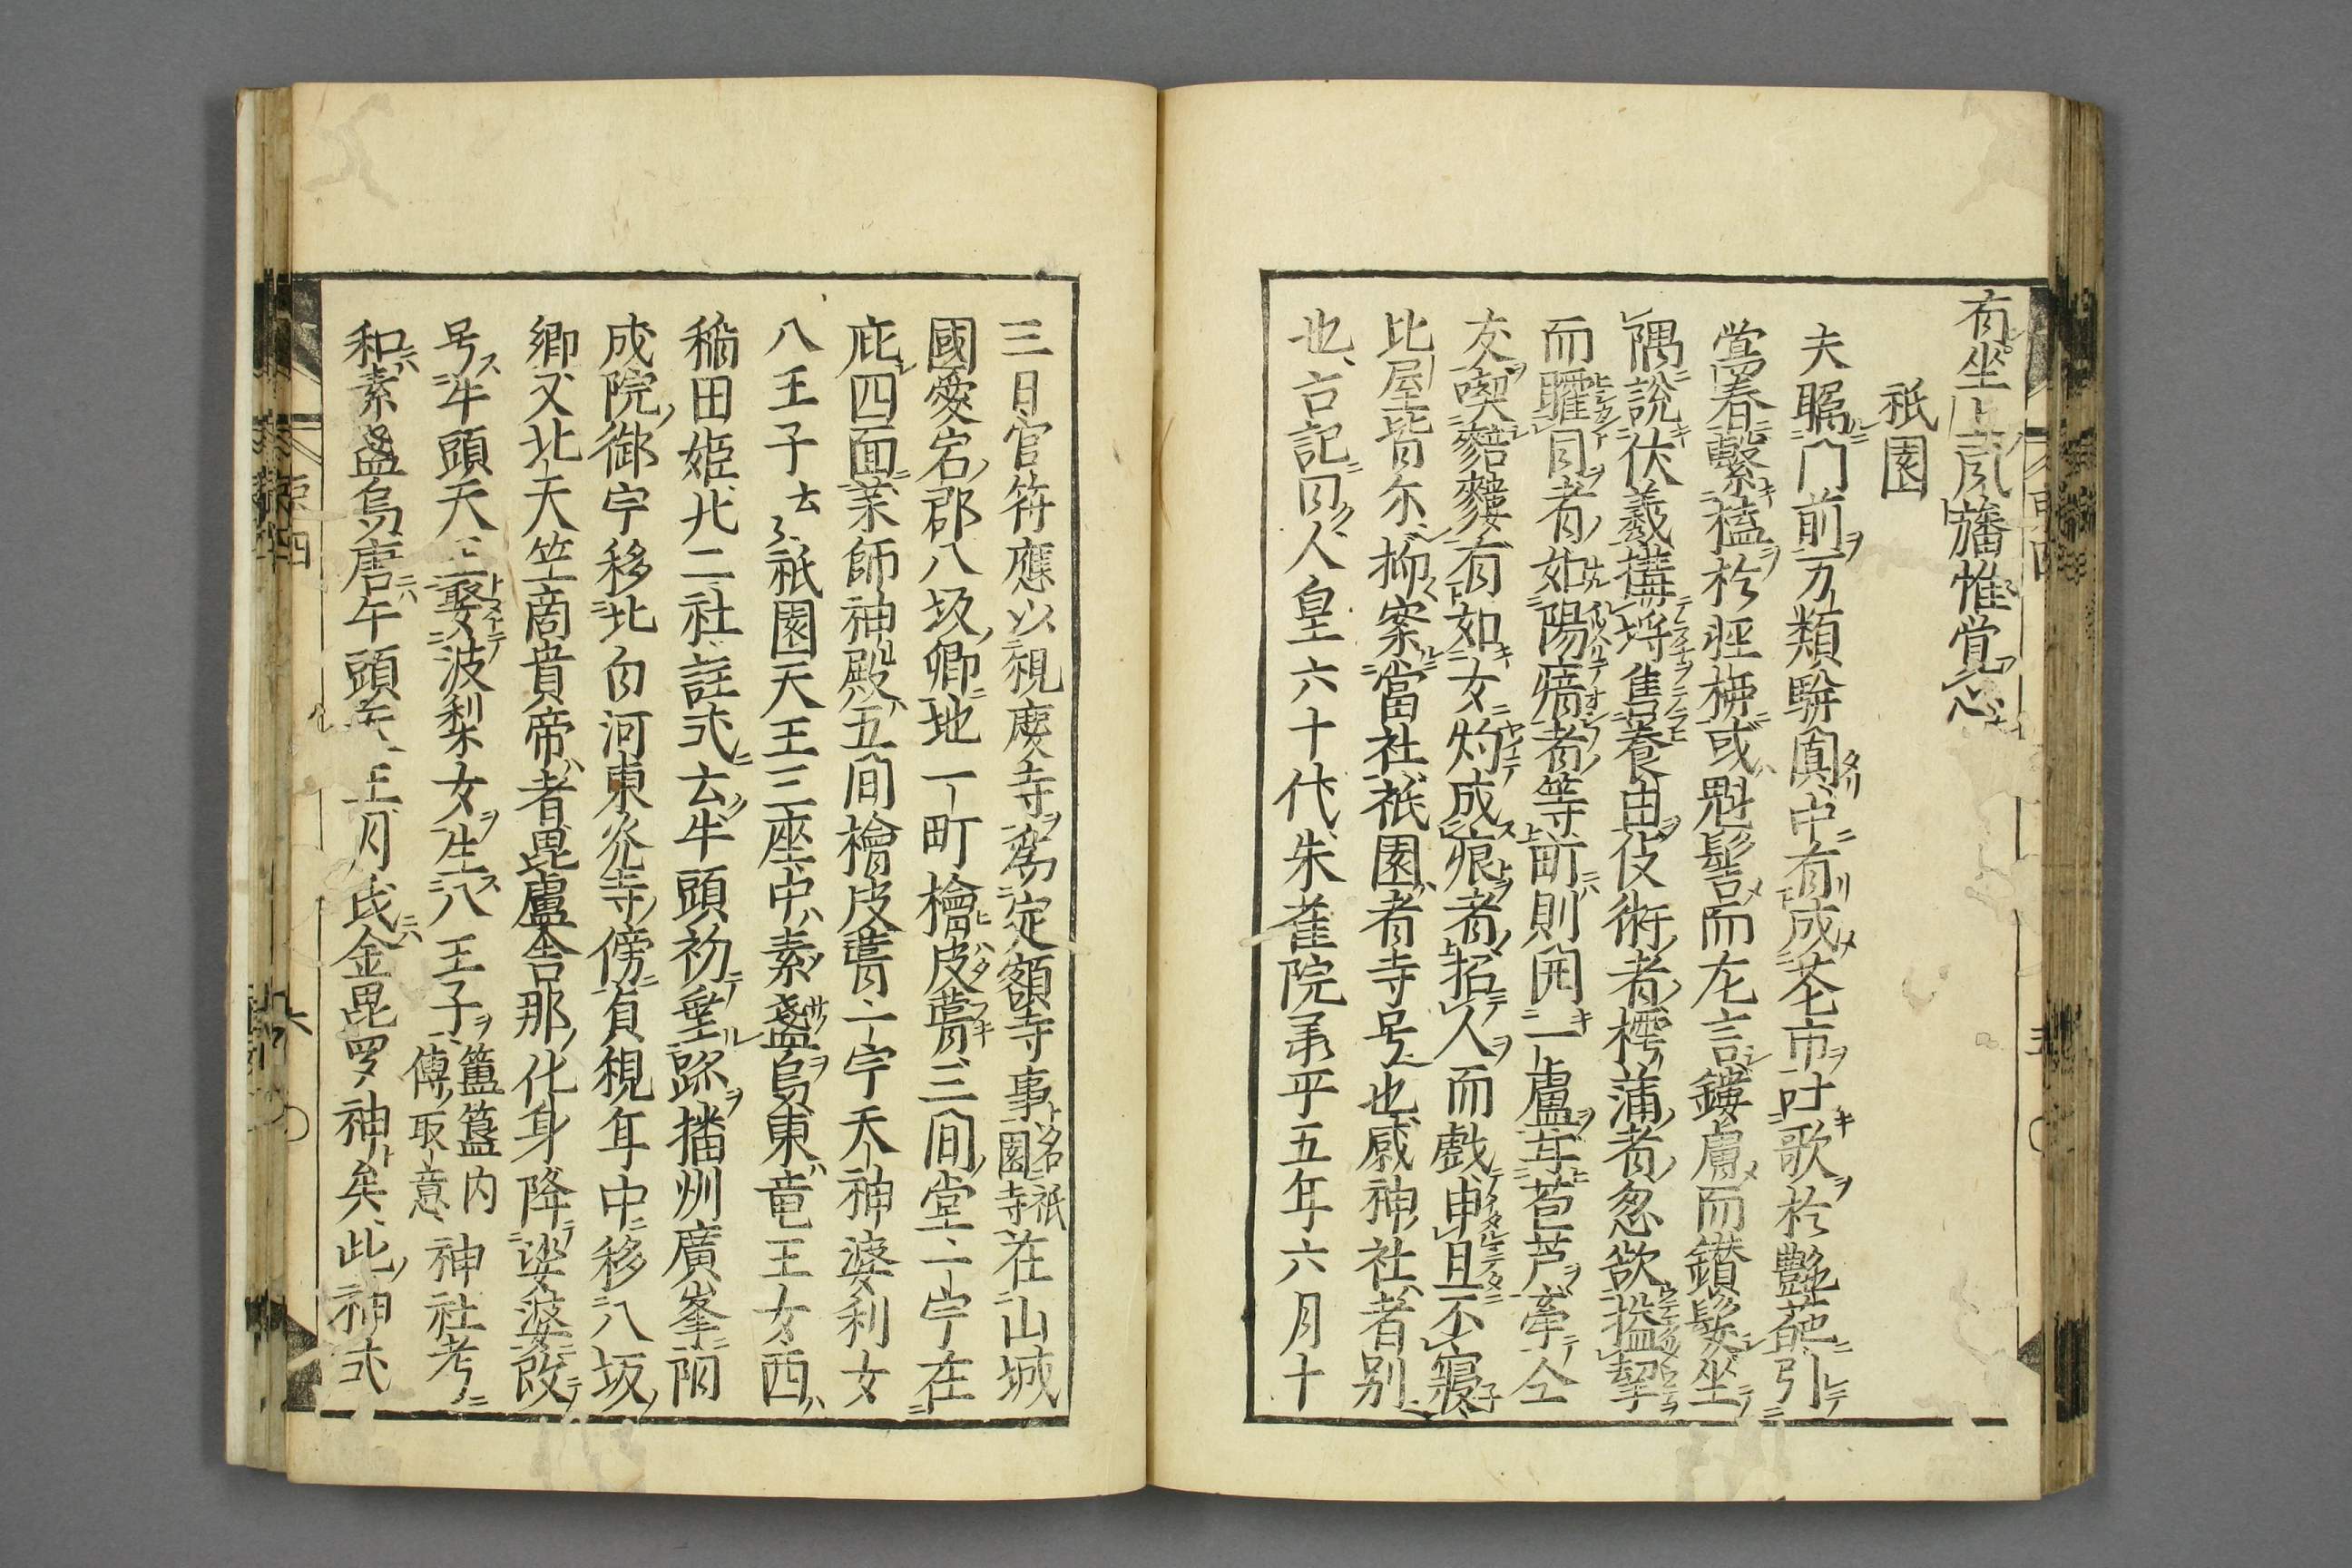 有坐上夙旛惟覚心
祇園
夫鴊門前万類駢闐中有成茶市吐歌於艶葩引
鶯春繫榼於𦙾梅或魁髻而尨言鏤膚而鑚髮坐
隅說伏羲搆埒售養由伎術者樗蒲者忽欲搤挈
而矐目者如陽瘖者等町則開一盧茸苞芦牽仝
友喫麴有如女灼成痕者招人而戯申旦不寢
比屋皆尓抑案當社祇園者寺号也感神社者別
也古記曰人皇六十代朱雀院承平五年六月十
三日官符應以観慶寺為定額寺事名祇園寺在山城
國愛宕郡八坂郷地一町檜皮葺三間堂一宇在
庇四面薬師神殿五間檜皮葺一宇天神婆利女
八王子云々祇園天王三座中素盞烏東竜王女西
稲田姫北二社註式云牛頭初垂跡播州廣峯䧟
成院御宇移北白河東光寺傍貞観年中移八坂
郷又北天竺商貴帝者毘盧舎那化身降娑婆改
号牛頭天王娶波梨女生八王子簠簋内傳取意神社考
和素盞烏唐牛頭天王月氏金毘羅神矣此神式